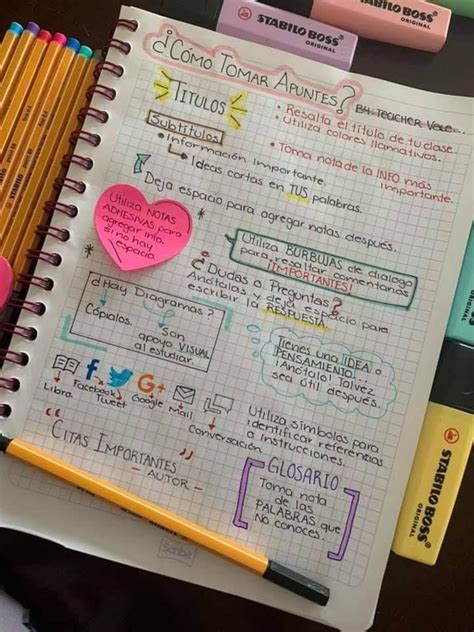 STABILO BOSS
ORIGINAL
STABILO BOSS
ORIGINAL
¿Cómo Tomar Apuntes?
By: Teacher Vele
TITULOS
• Resalta el título de tu clase
• Utiliza colores llamativos.
Subtítulos
• Información Importante.
Ideas cortas en TUS palabras.
• Toma nota de la INFO más
importante.
Deja espacio para agregar notas después.
Utiliza NOTAS
ADHESIVAS para
agregar info.
si no hay
espacio
Utiliza BURBUJAS de dialogo
para resaltar comentarios
¡IMPORTANTES!
¿Dudas o Preguntas?
Anótalas y deja espacio para
escribir la RESPUESTA.
¿Hay Diagramas?
Cópialos.
Son
apoyo VISUAL
al estudiar.
Tienes una IDEA o
PENSAMIENTO
¡Anótalo! Talvez
sea útil después.
G+
Libro
Facebook
Tweet
Google
Mail
Conversación
Utiliza símbolos para
identificar referencias
o instrucciones.
“ CITAS IMPORTANTES ”
— AUTOR —
GLOSARIO
Toma nota
de las
PALABRAS que
No conoces.
STABILO BOSS
ORIGINAL
Scribe